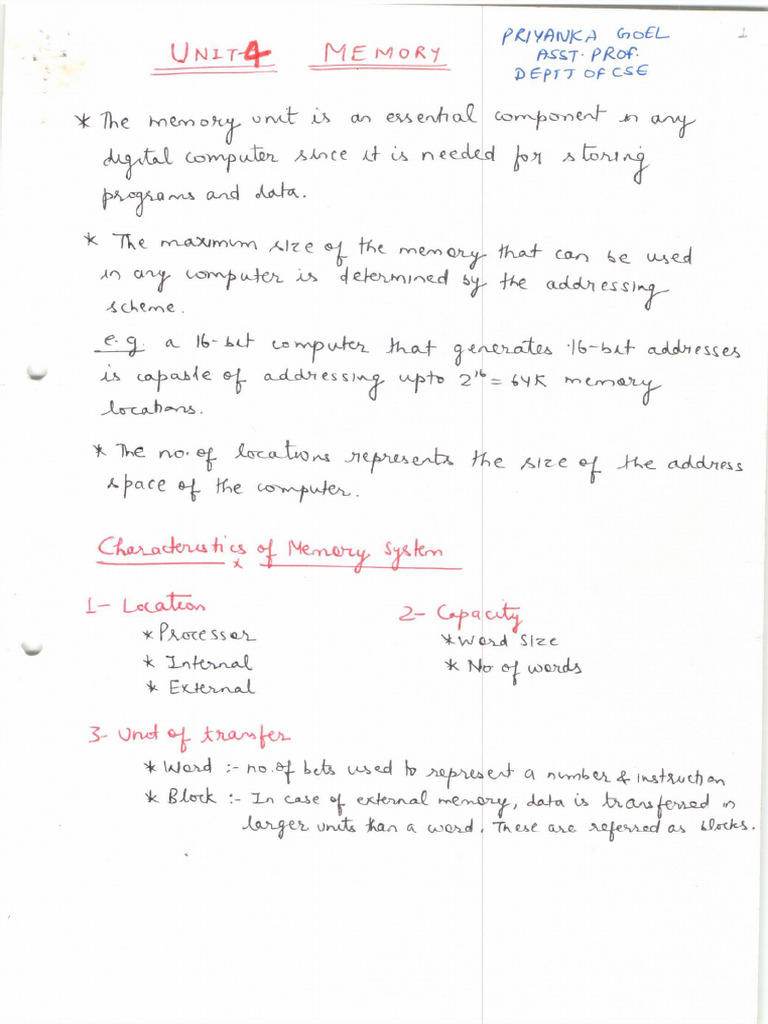 UNIT-4 MEMORY
PRIYANKA GOEL
ASST. PROF.
DEPTT OF CSE
1
* The memory unit is an essential component in any
digital computer since it is needed for storing
programs and data.
* The maximum size of the memory that can be used
in any computer is determined by the addressing
scheme.
e.g. a 16-bit computer that generates 16-bit addresses
is capable of addressing upto 2¹⁶ = 64K memory
locations.
* The no. of locations represents the size of the address
space of the computer.
Characteristics of Memory System
1- Location
* Processor
* Internal
* External
2- Capacity
* Word Size
* No of words
3- Unit of transfer
* Word :- no. of bits used to represent a number & instruction
* Block :- In case of external memory, data is transferred in
larger units than a word. These are referred as blocks.